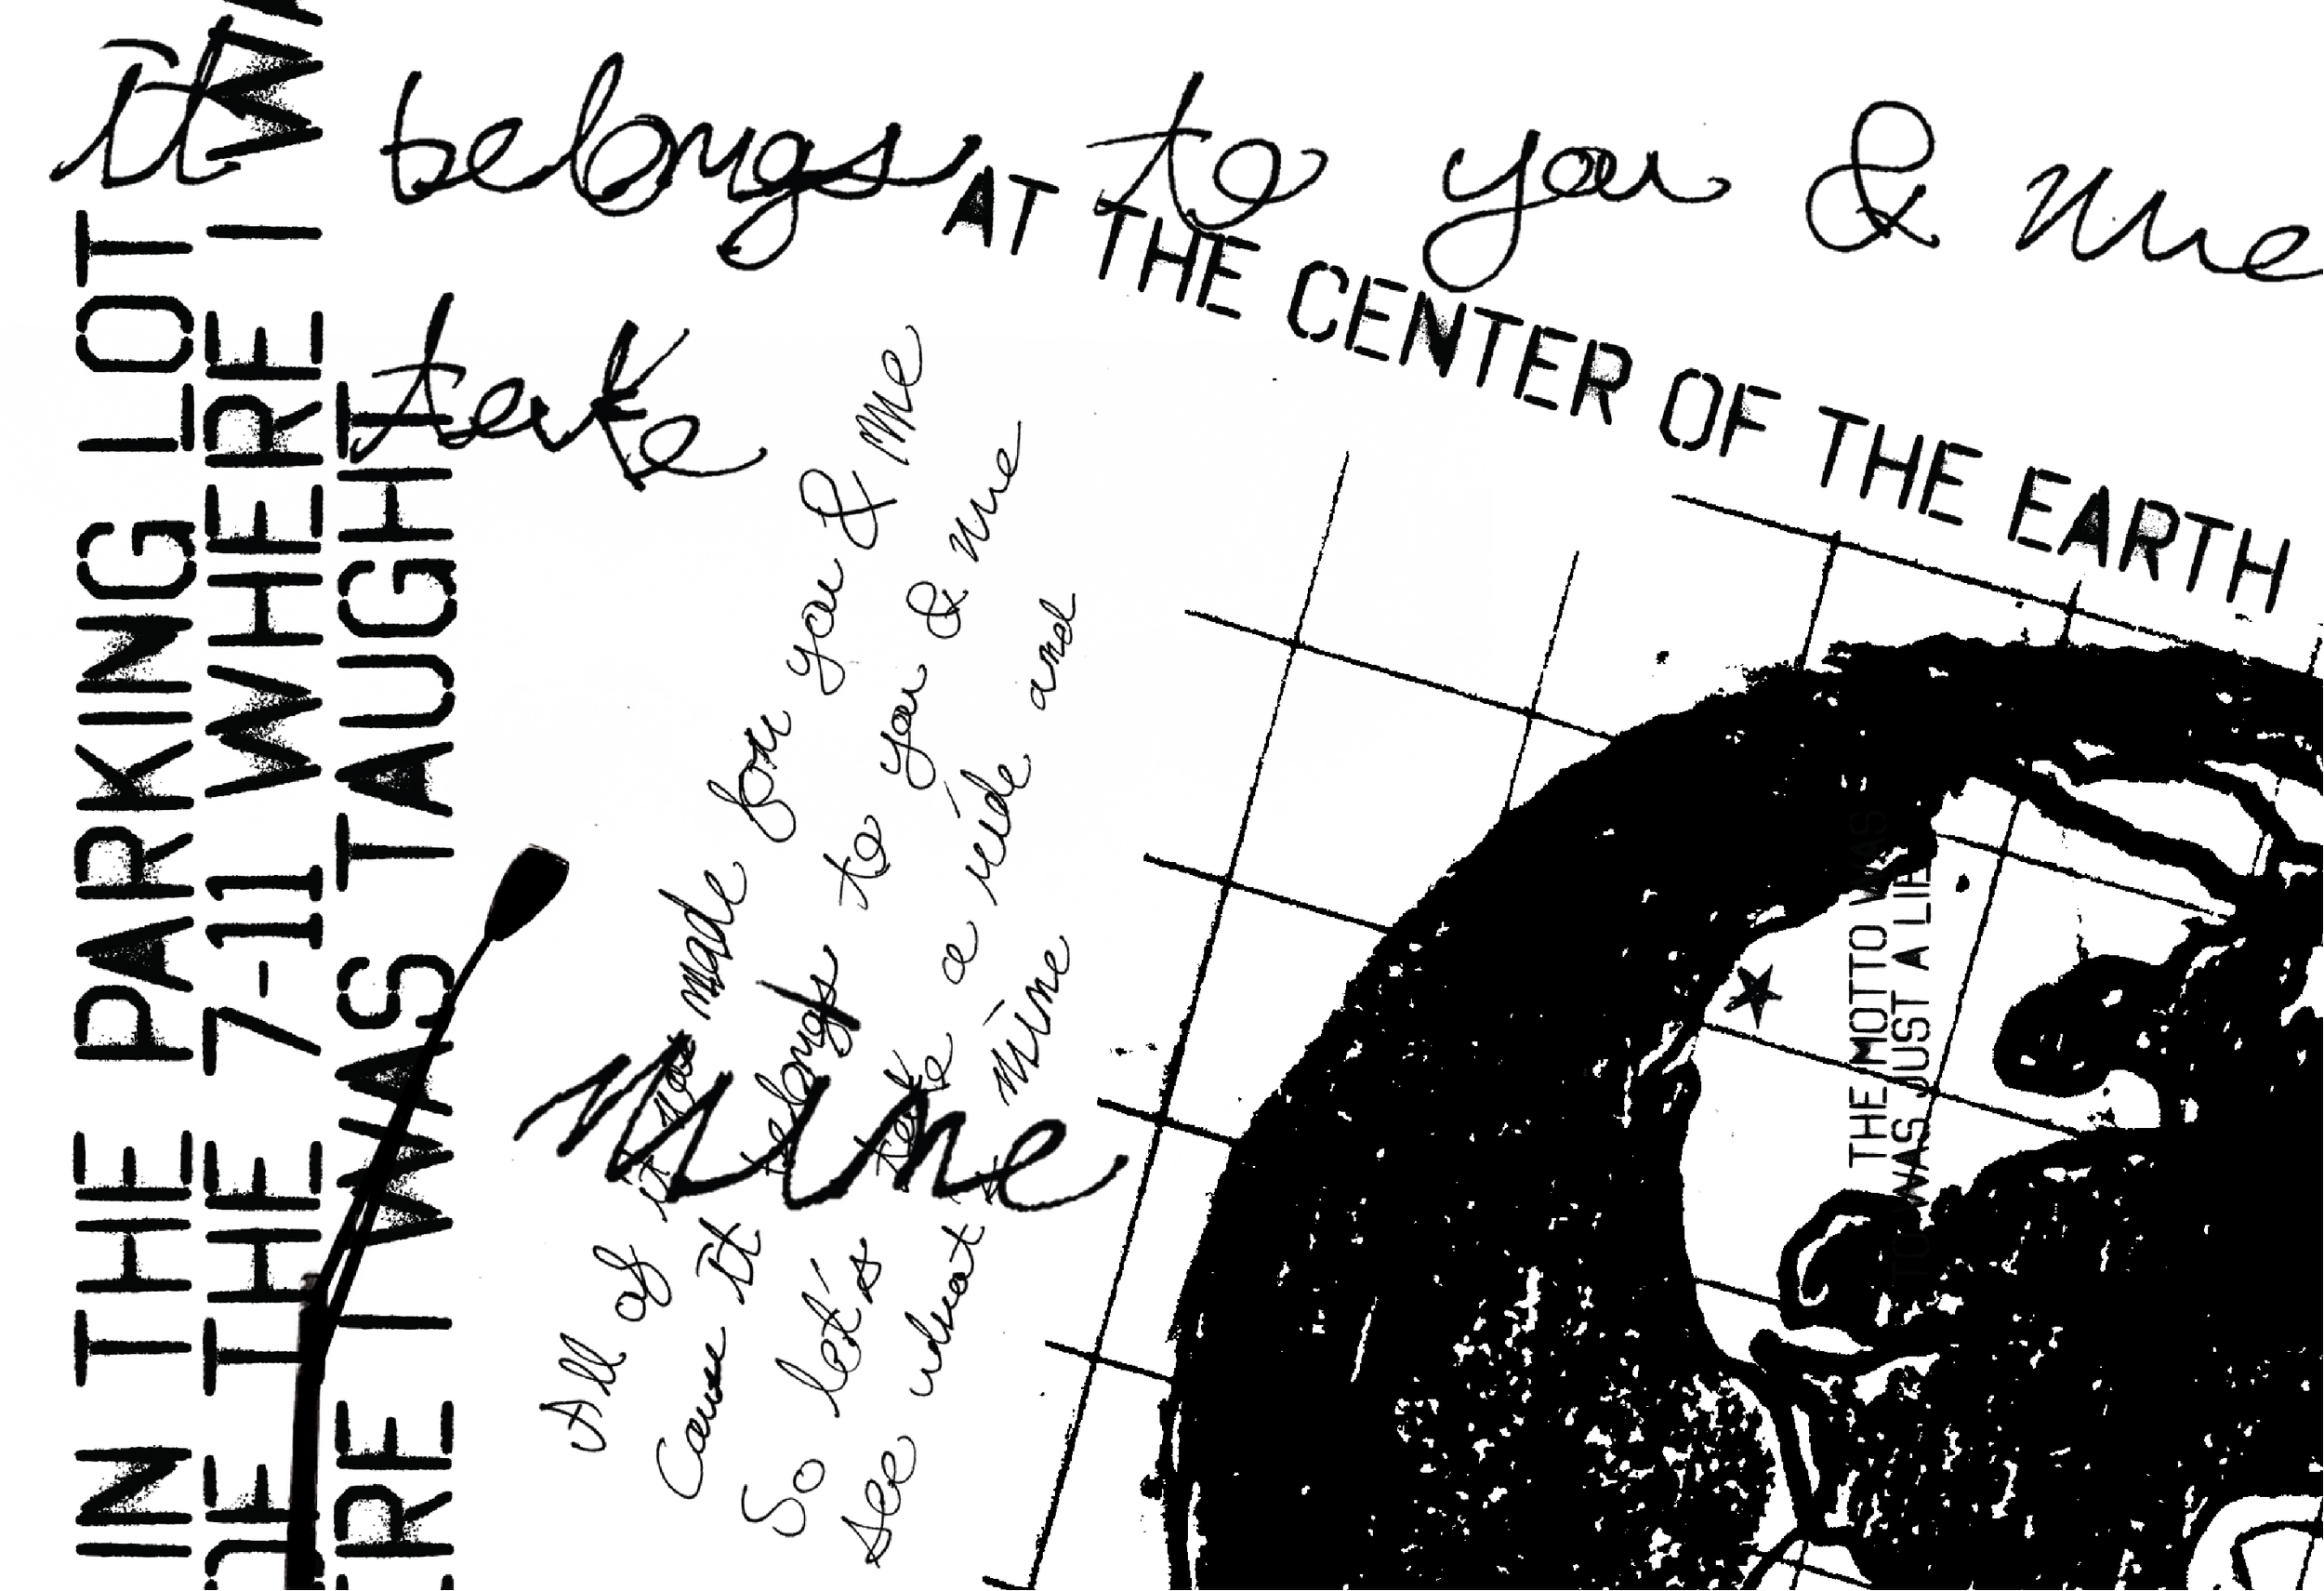 it belongs to you & me
take
mine
AT THE CENTER OF THE EARTH
IN THE PARKING LOT
THE 7-11 WHERE I
ERE I WAS TAUGHT
All of it was made for you & me
Cause it belongs to you & me
So let's take a ride and
see what's mine
THE MOTTO WAS
TO WAS JUST A LIE